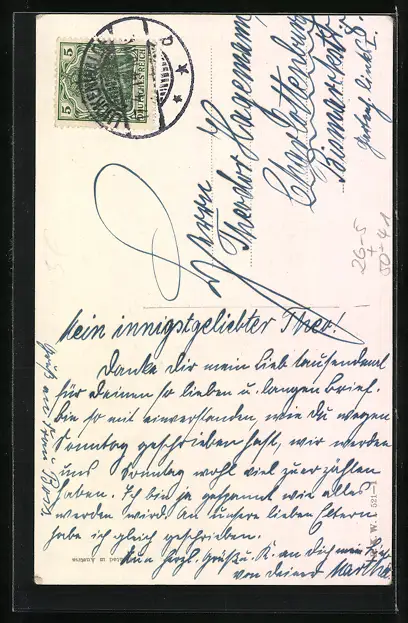 Herrn
Theodor Hagemann,
Charlottenburg
Bismarckstr. 8.
Gartenh. links I.
26-5
50+41
Mein innigstgeliebter Theo!
Danke dir mein Lieb tausendmal
für Deinen so lieben u. langen Brief.
bin so mit einverstanden, wie Du wegen
Sonntag geschrieben hast, wir werden
uns Sonntag wohl viel zu erzählen
haben. Ich bin ja gespannt wie alles
werden wird. An unsere lieben Eltern
habe ich gleich geschrieben.
Nun herzl. Grüße u. K. an Dich mein
von deiner Martha
Gruß an Frau
521
5
5